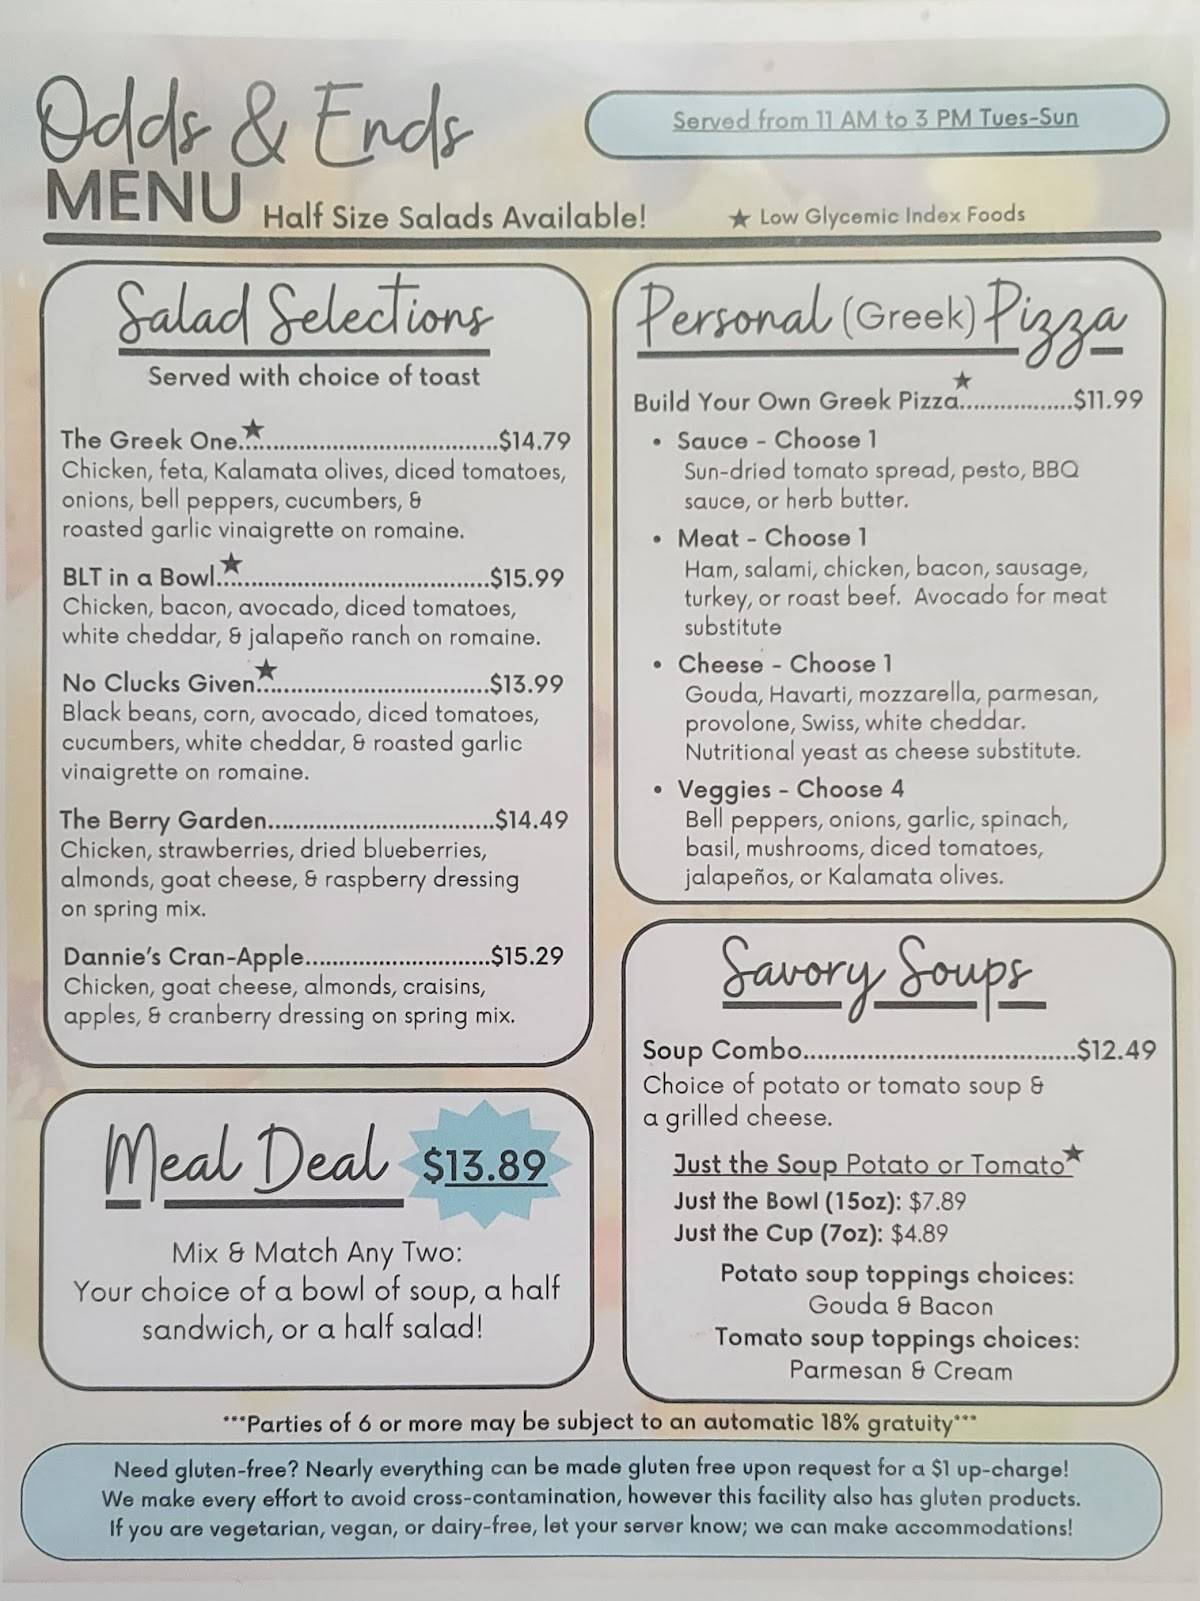 Odds & Ends
MENU
Half Size Salads Available!
Served from 11 AM to 3 PM Tues-Sun
★ Low Glycemic Index Foods
Salad Selections
Served with choice of toast
The Greek One.★..................................$14.79
Chicken, feta, Kalamata olives, diced tomatoes,
onions, bell peppers, cucumbers, &
roasted garlic vinaigrette on romaine.
BLT in a Bowl.★.....................................$15.99
Chicken, bacon, avocado, diced tomatoes,
white cheddar, & jalapeño ranch on romaine.
No Clucks Given.★.................................$13.99
Black beans, corn, avocado, diced tomatoes,
cucumbers, white cheddar, & roasted garlic
vinaigrette on romaine.
The Berry Garden.................................$14.49
Chicken, strawberries, dried blueberries,
almonds, goat cheese, & raspberry dressing
on spring mix.
Dannie's Cran-Apple...........................$15.29
Chicken, goat cheese, almonds, craisins,
apples, & cranberry dressing on spring mix.
Meal Deal $13.89
Mix & Match Any Two:
Your choice of a bowl of soup, a half
sandwich, or a half salad!
Personal (Greek) Pizza
Build Your Own Greek Pizza★.................$11.99
• Sauce - Choose 1
Sun-dried tomato spread, pesto, BBQ
sauce, or herb butter.
• Meat - Choose 1
Ham, salami, chicken, bacon, sausage,
turkey, or roast beef. Avocado for meat
substitute
• Cheese - Choose 1
Gouda, Havarti, mozzarella, parmesan,
provolone, Swiss, white cheddar.
Nutritional yeast as cheese substitute.
• Veggies - Choose 4
Bell peppers, onions, garlic, spinach,
basil, mushrooms, diced tomatoes,
jalapeños, or Kalamata olives.
Savory Soups
Soup Combo.......................................$12.49
Choice of potato or tomato soup &
a grilled cheese.
Just the Soup Potato or Tomato★
Just the Bowl (15oz): $7.89
Just the Cup (7oz): $4.89
Potato soup toppings choices:
Gouda & Bacon
Tomato soup toppings choices:
Parmesan & Cream
***Parties of 6 or more may be subject to an automatic 18% gratuity***
Need gluten-free? Nearly everything can be made gluten free upon request for a $1 up-charge!
We make every effort to avoid cross-contamination, however this facility also has gluten products.
If you are vegetarian, vegan, or dairy-free, let your server know; we can make accommodations!